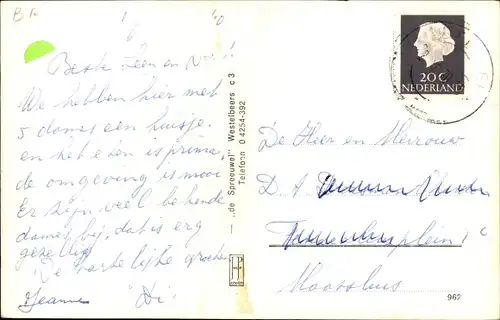 B 1.-
Beste Leen en
We hebben hier met
5 dames een huisje
en het eten is prima,
de omgeving is mooi
Er zijn veel bekende
dames bij, dat is erg
gezellig
De hartelijke groeten
Jeanne
„de Spreeuwel" Westelbeers c 3
Telefoon 0 4254-392
20 C
NEDERLAND
De Heer en Mevrouw
D. A.
plein
Maassluis
962